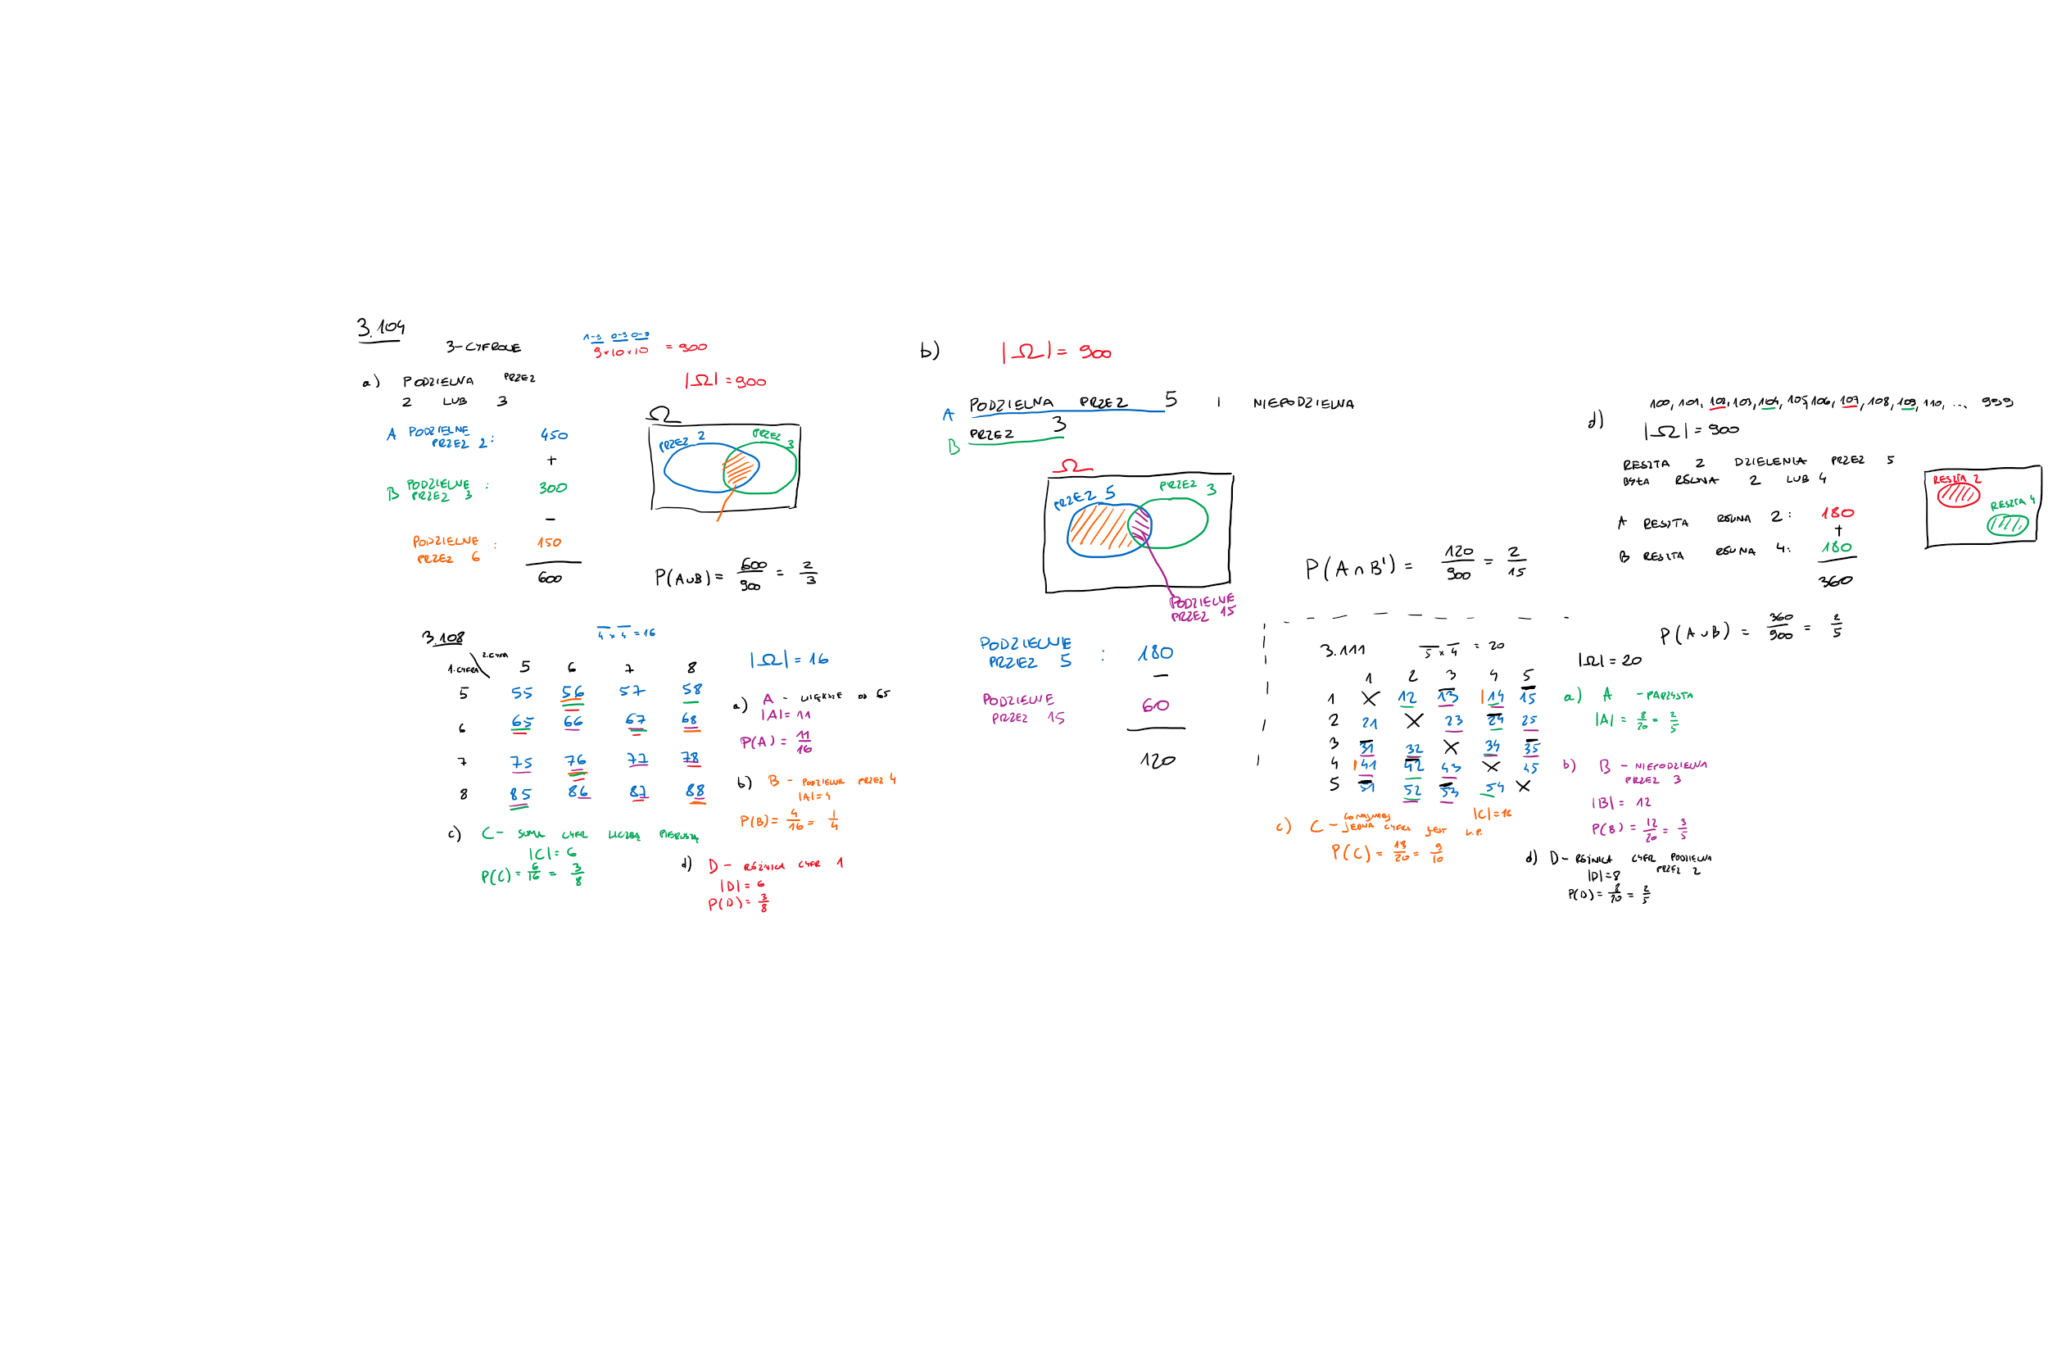 3.104
3-CYFROWE
1-9 0-9 0-9
9×10×10 = 900
a) PODZIELNA PRZEZ
2 LUB 3
|Ω| = 900
A PODZIELNE PRZEZ 2: 450
+
B PODZIELNE PRZEZ 3: 300
-
PODZIELNE PRZEZ 6: 150
600
Ω
PRZEZ 2
PRZEZ 3
P(A∪B) = 600/900 = 2/3
b) |Ω| = 900
A PODZIELNA PRZEZ 5 I NIEPODZIELNA
B PRZEZ 3
Ω
PRZEZ 5
PRZEZ 3
PODZIELNE
PRZEZ 15
PODZIELNE PRZEZ 5 : 180
-
PODZIELNE PRZEZ 15 60
120
P(A∩B') = 120/900 = 2/15
d) 100, 101, 102, 103, 104, 105, 106, 107, 108, 109, 110, ... 999
|Ω| = 900
RESZTA Z DZIELENIA PRZEZ 5
BYŁA RÓWNA 2 LUB 4
A RESZTA RÓWNA 2: 180
+
B RESZTA RÓWNA 4: 180
360
RESZTA 2
RESZTA 4
P(A∪B) = 360/900 = 2/5
3.108
4 × 4 = 16
1. CYFRA 2. CYFRA
5 6 7 8
5 55 56 57 58
6 65 66 67 68
7 75 76 77 78
8 85 86 87 88
|Ω| = 16
a) A - WIĘKSZE OD 65
|A| = 11
P(A) = 11/16
b) B - PODZIELNE PRZEZ 4
|A| = 4
P(B) = 4/16 = 1/4
c) C - SUMA CYFR LICZBĄ PIERWSZĄ
|C| = 6
P(C) = 6/16 = 3/8
d) D - RÓŻNICA CYFR 1
|D| = 6
P(D) = 3/8
3.111
5 × 4 = 20
1 2 3 4 5
1 X 12 13 14 15
2 21 X 23 24 25
3 31 32 X 34 35
4 41 42 43 X 45
5 51 52 53 54 X
|Ω| = 20
a) A - PARZYSTA
|A| = 8/20 = 2/5
b) B - NIEPODZIELNA
PRZEZ 3
|B| = 12
P(B) = 12/20 = 3/5
c) C - CO NAJMNIEJ
JEDNA CYFRA JEST
|C| = 18
P(C) = 18/20 = 9/10
d) D - RÓŻNICA CYFR PODZIELNA
PRZEZ 2
|D| = 8
P(D) = 8/20 = 2/5